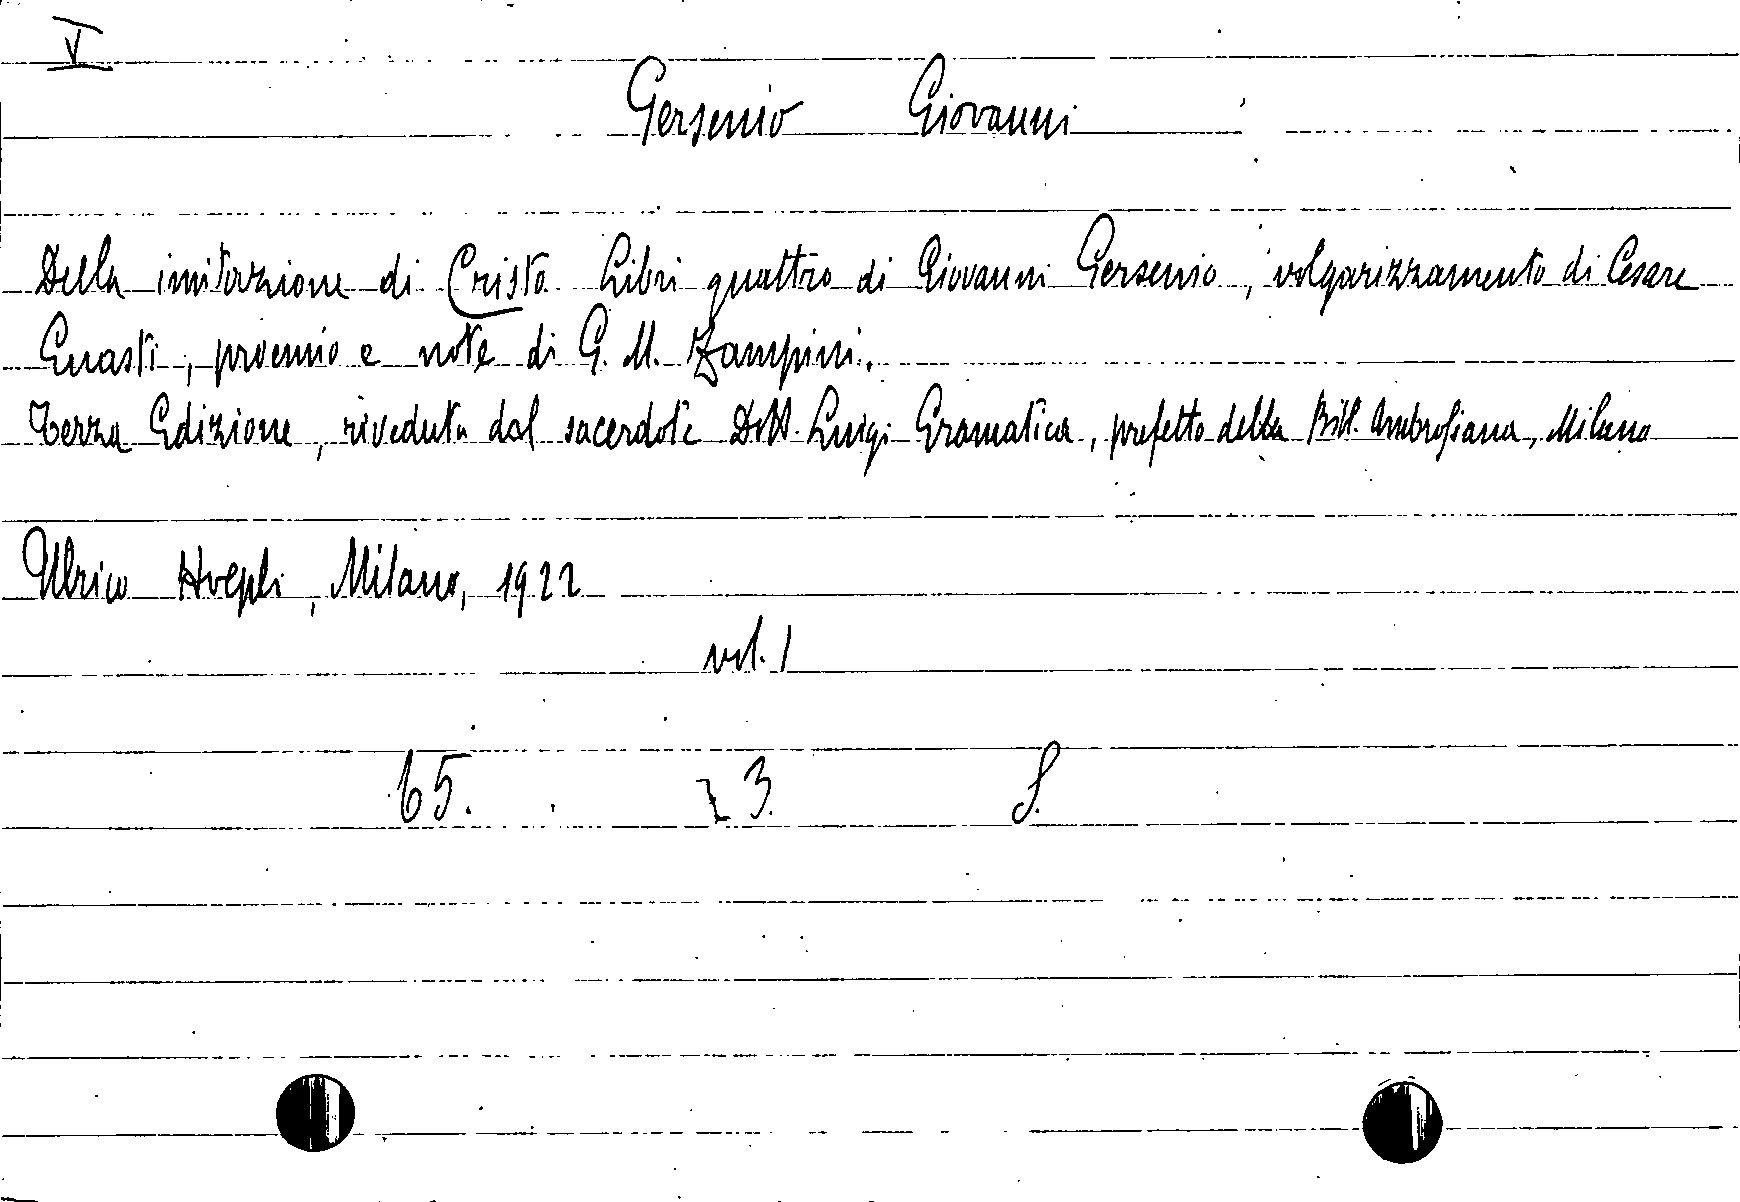 V
Gersenio Giovanni
Della imitazione di Cristo. Libri quattro di Giovanni Gersenio, volgarizzamento di Cesare
Guasti, proemio e note di G. M. Zampini.
Terza Edizione, riveduta dal sacerdote Dott. Luigi Gramatica, prefetto della Bibl. Ambrosiana, Milano
Ulrico Hoepli, Milano, 1922
vol. 1
65. 23. S.